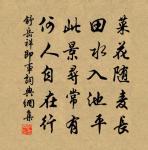 菜花随麦長
田水入池平
此景尋常有
何人自在行
舒岳祥即事詞典網集